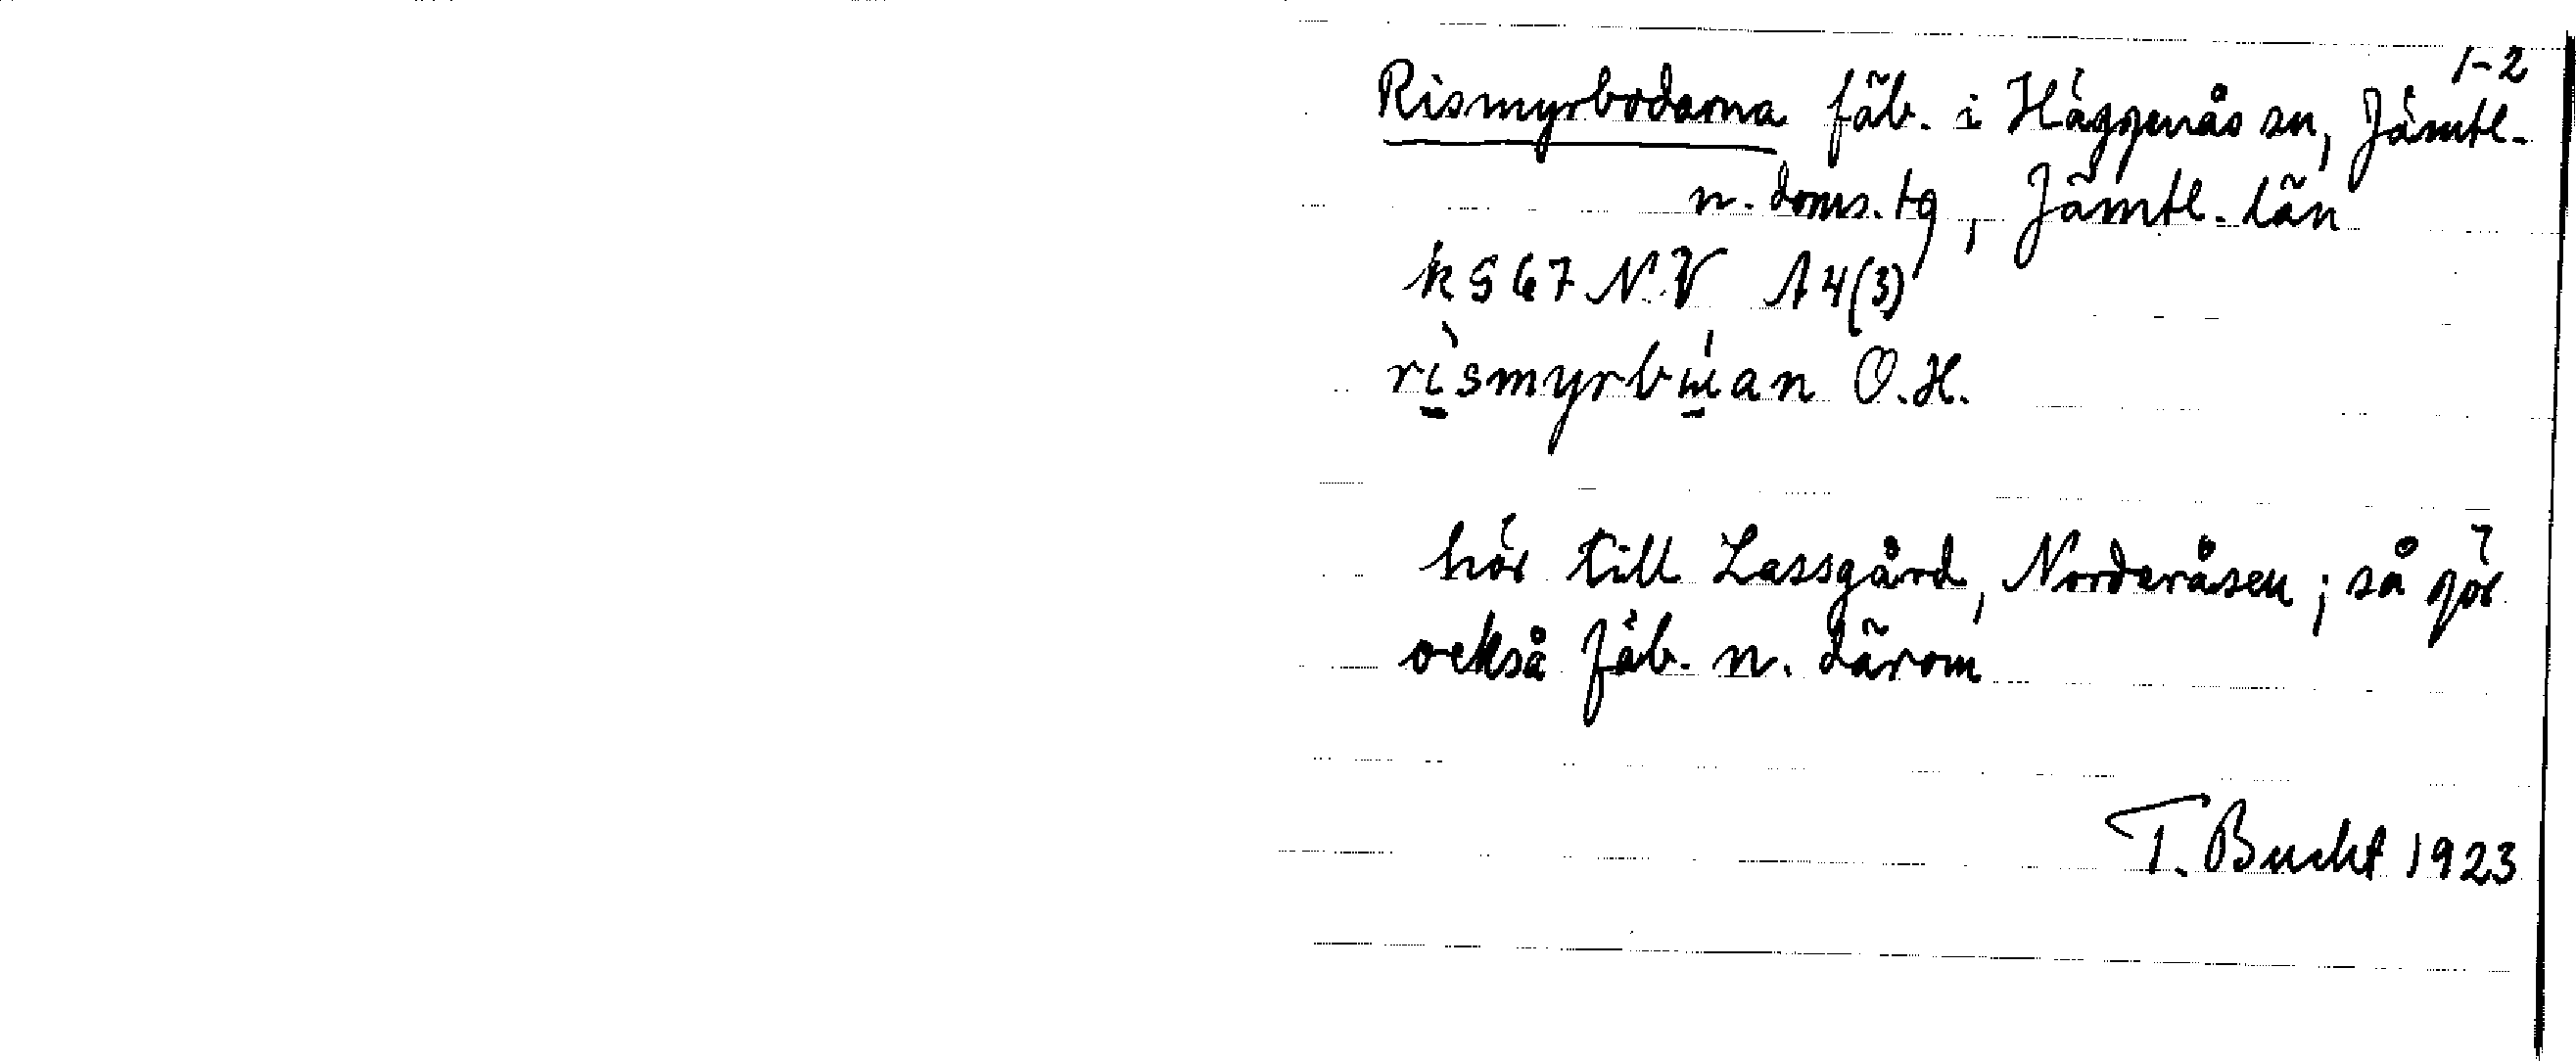 1-2
Rismyrbodarna fäb. i Häggenås sn, Jämtl.
n. doms. tg, Jämtl. län
k S 67 N.V A 4 (3)
rismyrbuan O.H.
hör till Lassgård, Norderåsen; så gör
också fäb. n. därom
T. Bucht 1923